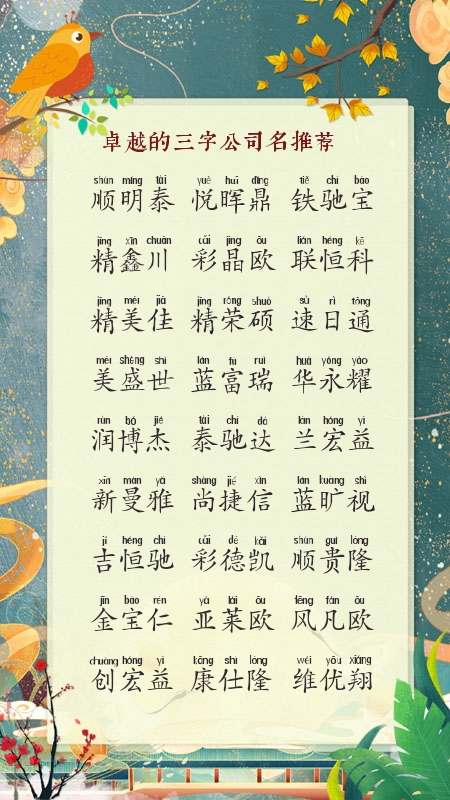 卓越的三字公司名推荐
shùn míng tài yuè huī dǐng tiě chí bǎo
顺明泰 悦晖鼎 铁驰宝
jīng xīn chuān cǎi jīng ōu lián héng kē
精鑫川 彩晶欧 联恒科
jīng měi jiā jīng róng shuò sù rì tōng
精美佳 精荣硕 速日通
měi shèng shì lán fù ruì huá yǒng yào
美盛世 蓝富瑞 华永耀
rùn bó jié tài chí dá lán hóng yì
润博杰 泰驰达 兰宏益
xīn màn yǎ shàng jié xìn lán kuàng shì
新曼雅 尚捷信 蓝旷视
jí héng chí cǎi dé kǎi shùn guì lóng
吉恒驰 彩德凯 顺贵隆
jīn bǎo rén yà lái ōu fēng fán ōu
金宝仁 亚莱欧 风凡欧
chuàng hóng yì kāng shì lóng wéi yōu xiáng
创宏益 康仕隆 维优翔